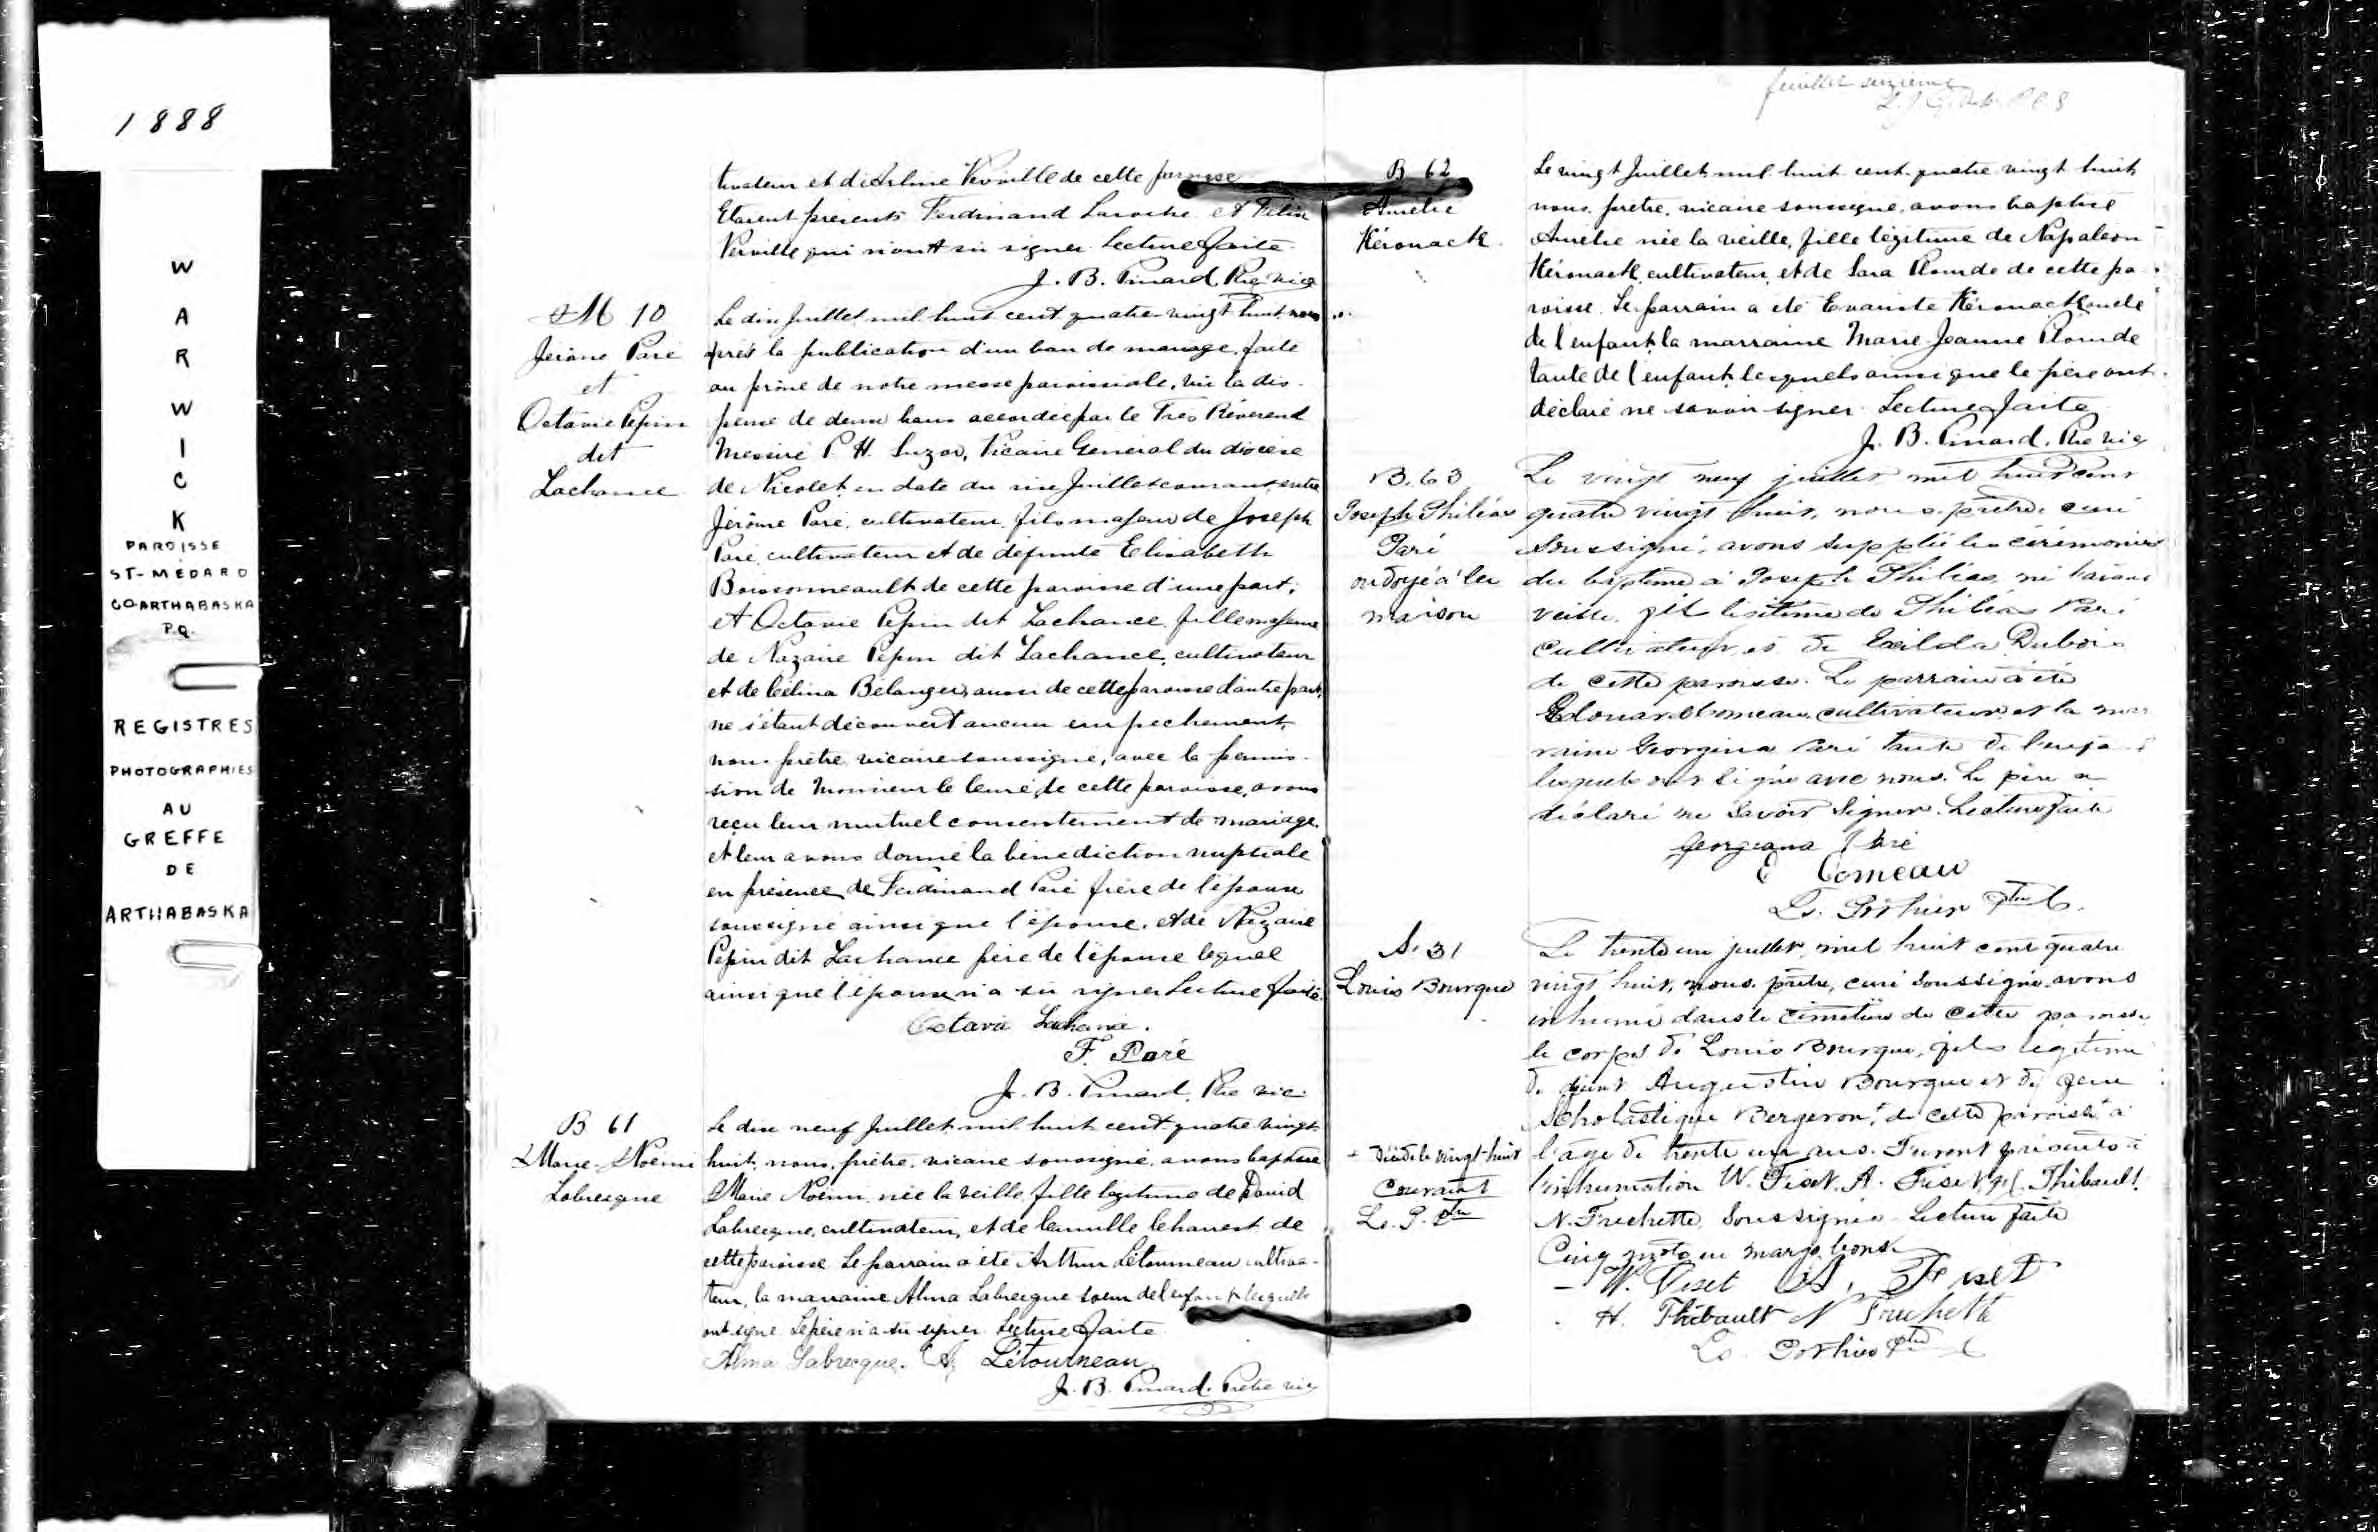 1888
W
A
R
W
I
C
K
PAROISSE
ST-MÉDARD
CO-ARTHABASKA
P.Q.
REGISTRES
PHOTOGRAPHIES
AU
GREFFE
DE
ARTHABASKA
tivateur et d'Adeline Verville de cette paroisse
Etaient présents Ferdinand Laroche et Félix
Verville qui n'ont su signer Lecture faite
J. B. Pinard Ptre Vic
M 10
Jérôme Paré
et
Octavie Pepin
dit
Lachance
Le dix Juillet mil huit cent quatre-vingt huit
après la publication d'un ban de mariage, faite
au prône de notre messe paroissiale, vu la dis-
pense de deux bans accordée par le Très Révérend
Messire P. H. Suzor, Vicaire Général du diocèse
de Nicolet en date du six Juillet courant entre
Jérôme Paré, cultivateur, fils majeur de Joseph
Paré, cultivateur et de défunte Elisabeth
Boissonneault de cette paroisse d'une part;
et Octavie Pepin dit Lachance, fille majeure
de Nazaire Pepin dit Lachance, cultivateur
et de Célina Bélanger, aussi de cette paroisse d'autre part,
ne s'étant découvert aucun empêchement,
nous prêtre vicaire soussigné, avec la permis-
sion de Monsieur le Curé de cette paroisse, avons
reçu leur mutuel consentement de mariage
et leur avons donné la bénédiction nuptiale
en présence de Ferdinand Paré frère de l'époux
soussigné ainsi que l'épouse, et de Nazaire
Pepin dit Lachance père de l'épouse lequel
ainsi que l'époux n'a su signer Lecture faite.
Octavie Lachance.
F. Paré
J. B. Pinard, Ptre vic
B 61
Marie-Noémi
Labrecque
Le dix neuf Juillet mil huit cent quatre vingt
huit, nous, prêtre, vicaire soussigné, avons baptisé
Marie Noémi née la veille, fille légitime de David
Labrecque, cultivateur, et de Camille Chaurest de
cette paroisse Le parrain a été Arthur Létourneau cultiva-
teur, la marraine Alma Labrecque soeur de l'enfant lesquels
ont signé Le père n'a su signer Lecture faite
Alma Labrecque. A Létourneau
J. B. Pinard. Prêtre vic
feuillet seizième
B 62
Amélie
Kérouack
Le vingt Juillet mil huit cent quatre vingt huit
nous, prêtre, vicaire soussigné, avons baptisé
Amélie née la veille, fille légitime de Napoléon
Kérouack, cultivateur, et de Sara Plourde de cette pa-
roisse. Le parrain a été Evariste Kérouack oncle
de l'enfant, la marraine Marie Jeanne Plourde
tante de l'enfant, lesquels ainsi que le père ont
déclaré ne savoir signer. Lecture faite
J. B. Pinard. Ptre vic
B. 63
Joseph Philéas
Paré
ondoyé à la
maison
Le vingt neuf juillet mil huit cent
quatre vingt huit, nous, prêtre, curé
soussigné, avons suppléé les cérémonies
du baptême à Joseph Philéas, né
veille, fils légitime de Philéas Paré
cultivateur, et de Exilda Dubois
de cette paroisse. Le parrain a été
Edouard Comeau, cultivateur et la mar
raine Georgina Paré tante de l'enfa
lesquels ont signé avec nous. Le père a
déclaré ne savoir signer. Lecture faite
Georgiana Paré
E Comeau
Ls. Pothier Ptre C.
S. 31
Louis Bourque
Le trente un juillet, mil huit cent quatre
vingt huit, nous, prêtre, curé soussigné avons
inhumé dans le cimetière de cette paroisse
le corps de Louis Bourque, fils légitime
de Augustin Bourque et de
Scholastique Bergeron, + de cette paroisse à
l'âge de trente un ans. Furent présents à
l'inhumation W. Fiset, A. Fiset, H. Thibault,
N. Frechette, soussignés. Lecture faite
Cinq mots en marge bons
+ Décédé le vingt-huit
Courant
Ls. P. Ptre
W. Fiset A. Fiset
H. Thibault N Frechette
Ls. Pothier Ptre C